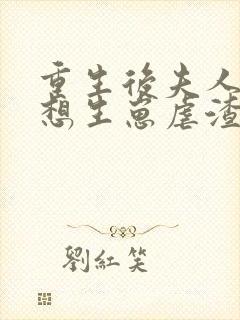 重生後夫人
想生崽虐渣
劉紅笑